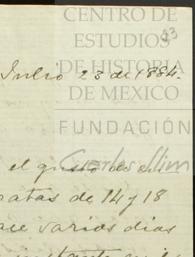 CENTRO DE
ESTUDIOS
23
DE HISTORIA
Julio 23 de 1884.
DE MEXICO
FUNDACIÓN
el gusto de
Carlos Slim
atas de 14 y 18
ace varios dias